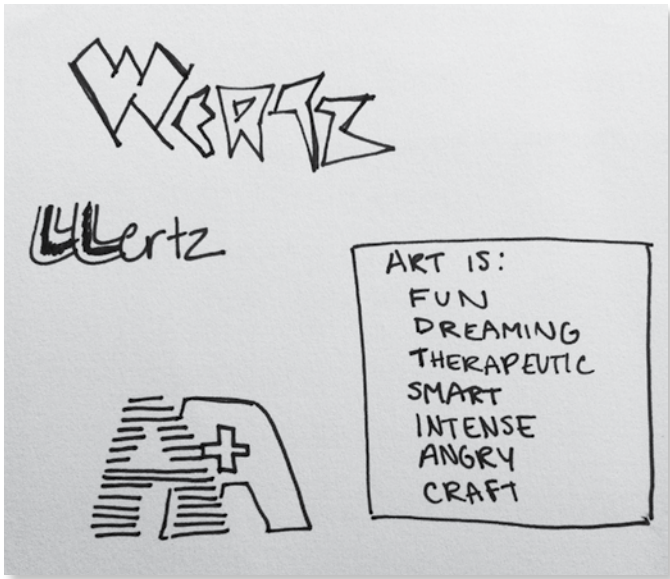 WERTZ
Wertz
A+
ART IS:
FUN
DREAMING
THERAPEUTIC
SMART
INTENSE
ANGRY
CRAFT